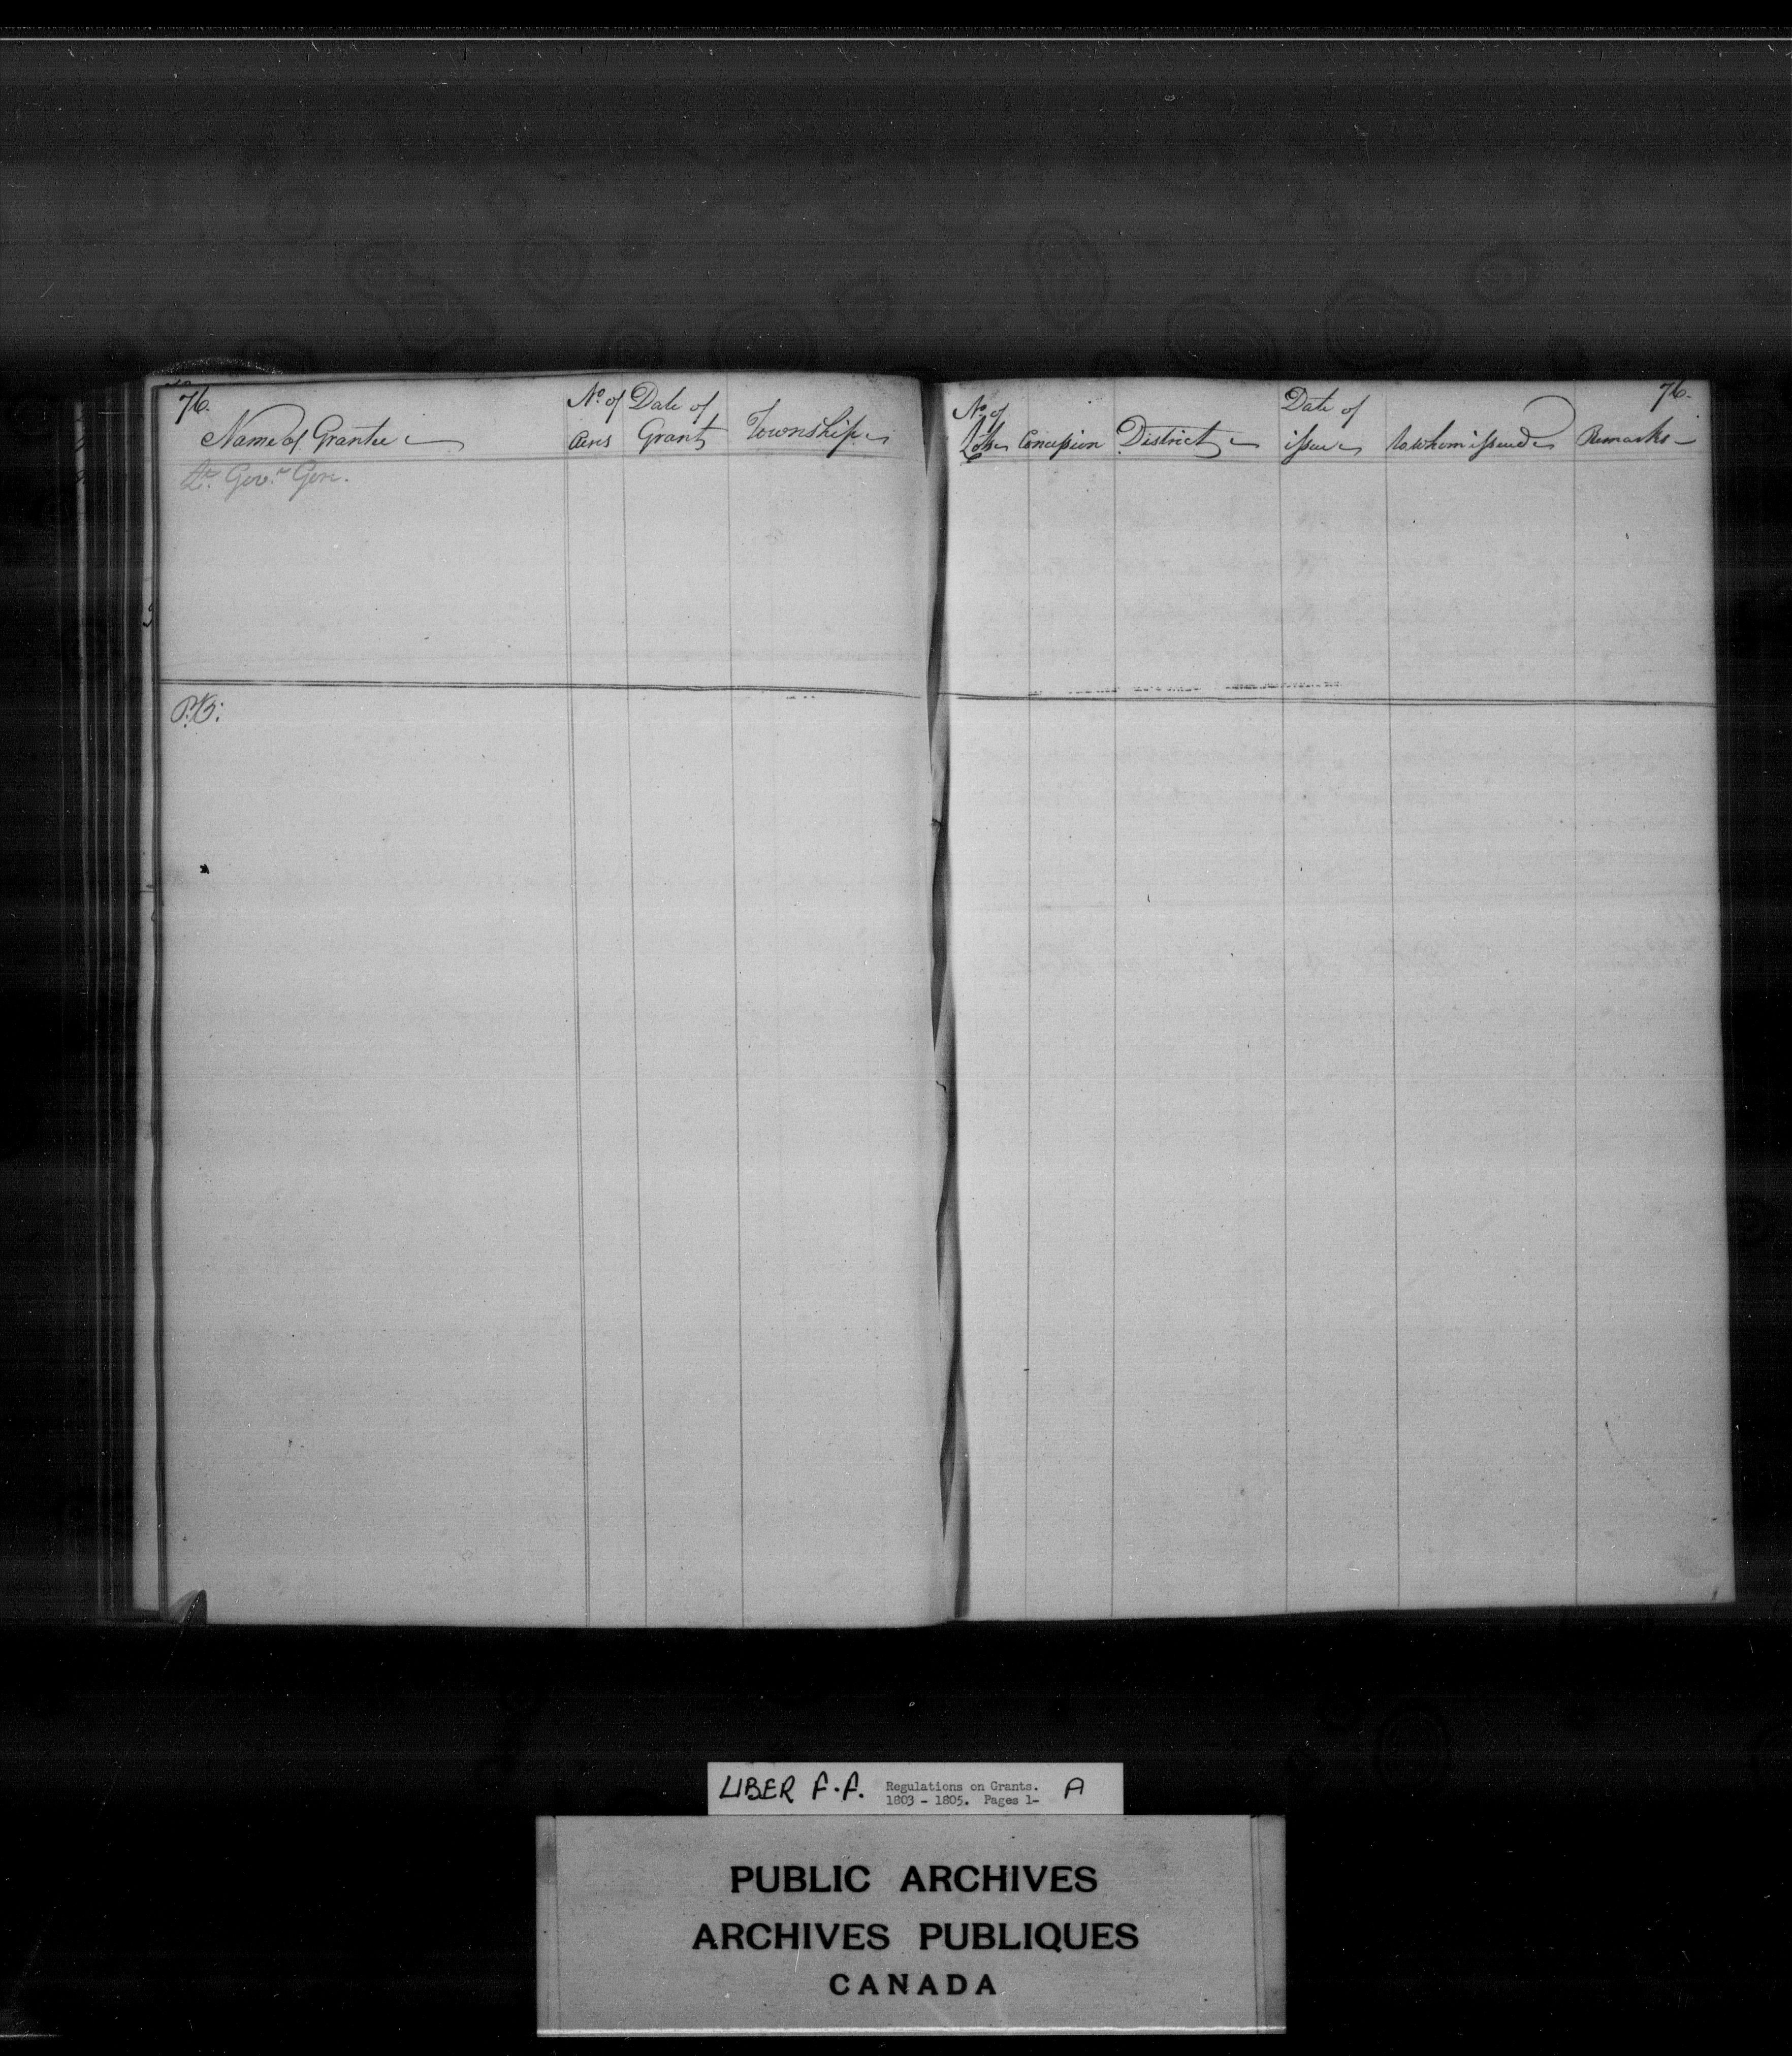 76.
Name of Grantee
No. of Acres
Date of Grant
Township
Lt. Govr. Gore.
P.B:
76.
No. of Lots
Concession
District
Date of issue
to whom issued
Remarks
LIBER F.F. Regulations on Grants. 1803 - 1805. Pages 1- A
PUBLIC ARCHIVES
ARCHIVES PUBLIQUES
CANADA